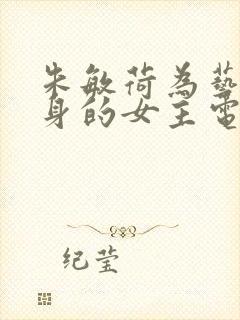 朱敏荷為藝
身的女主電
纪莹